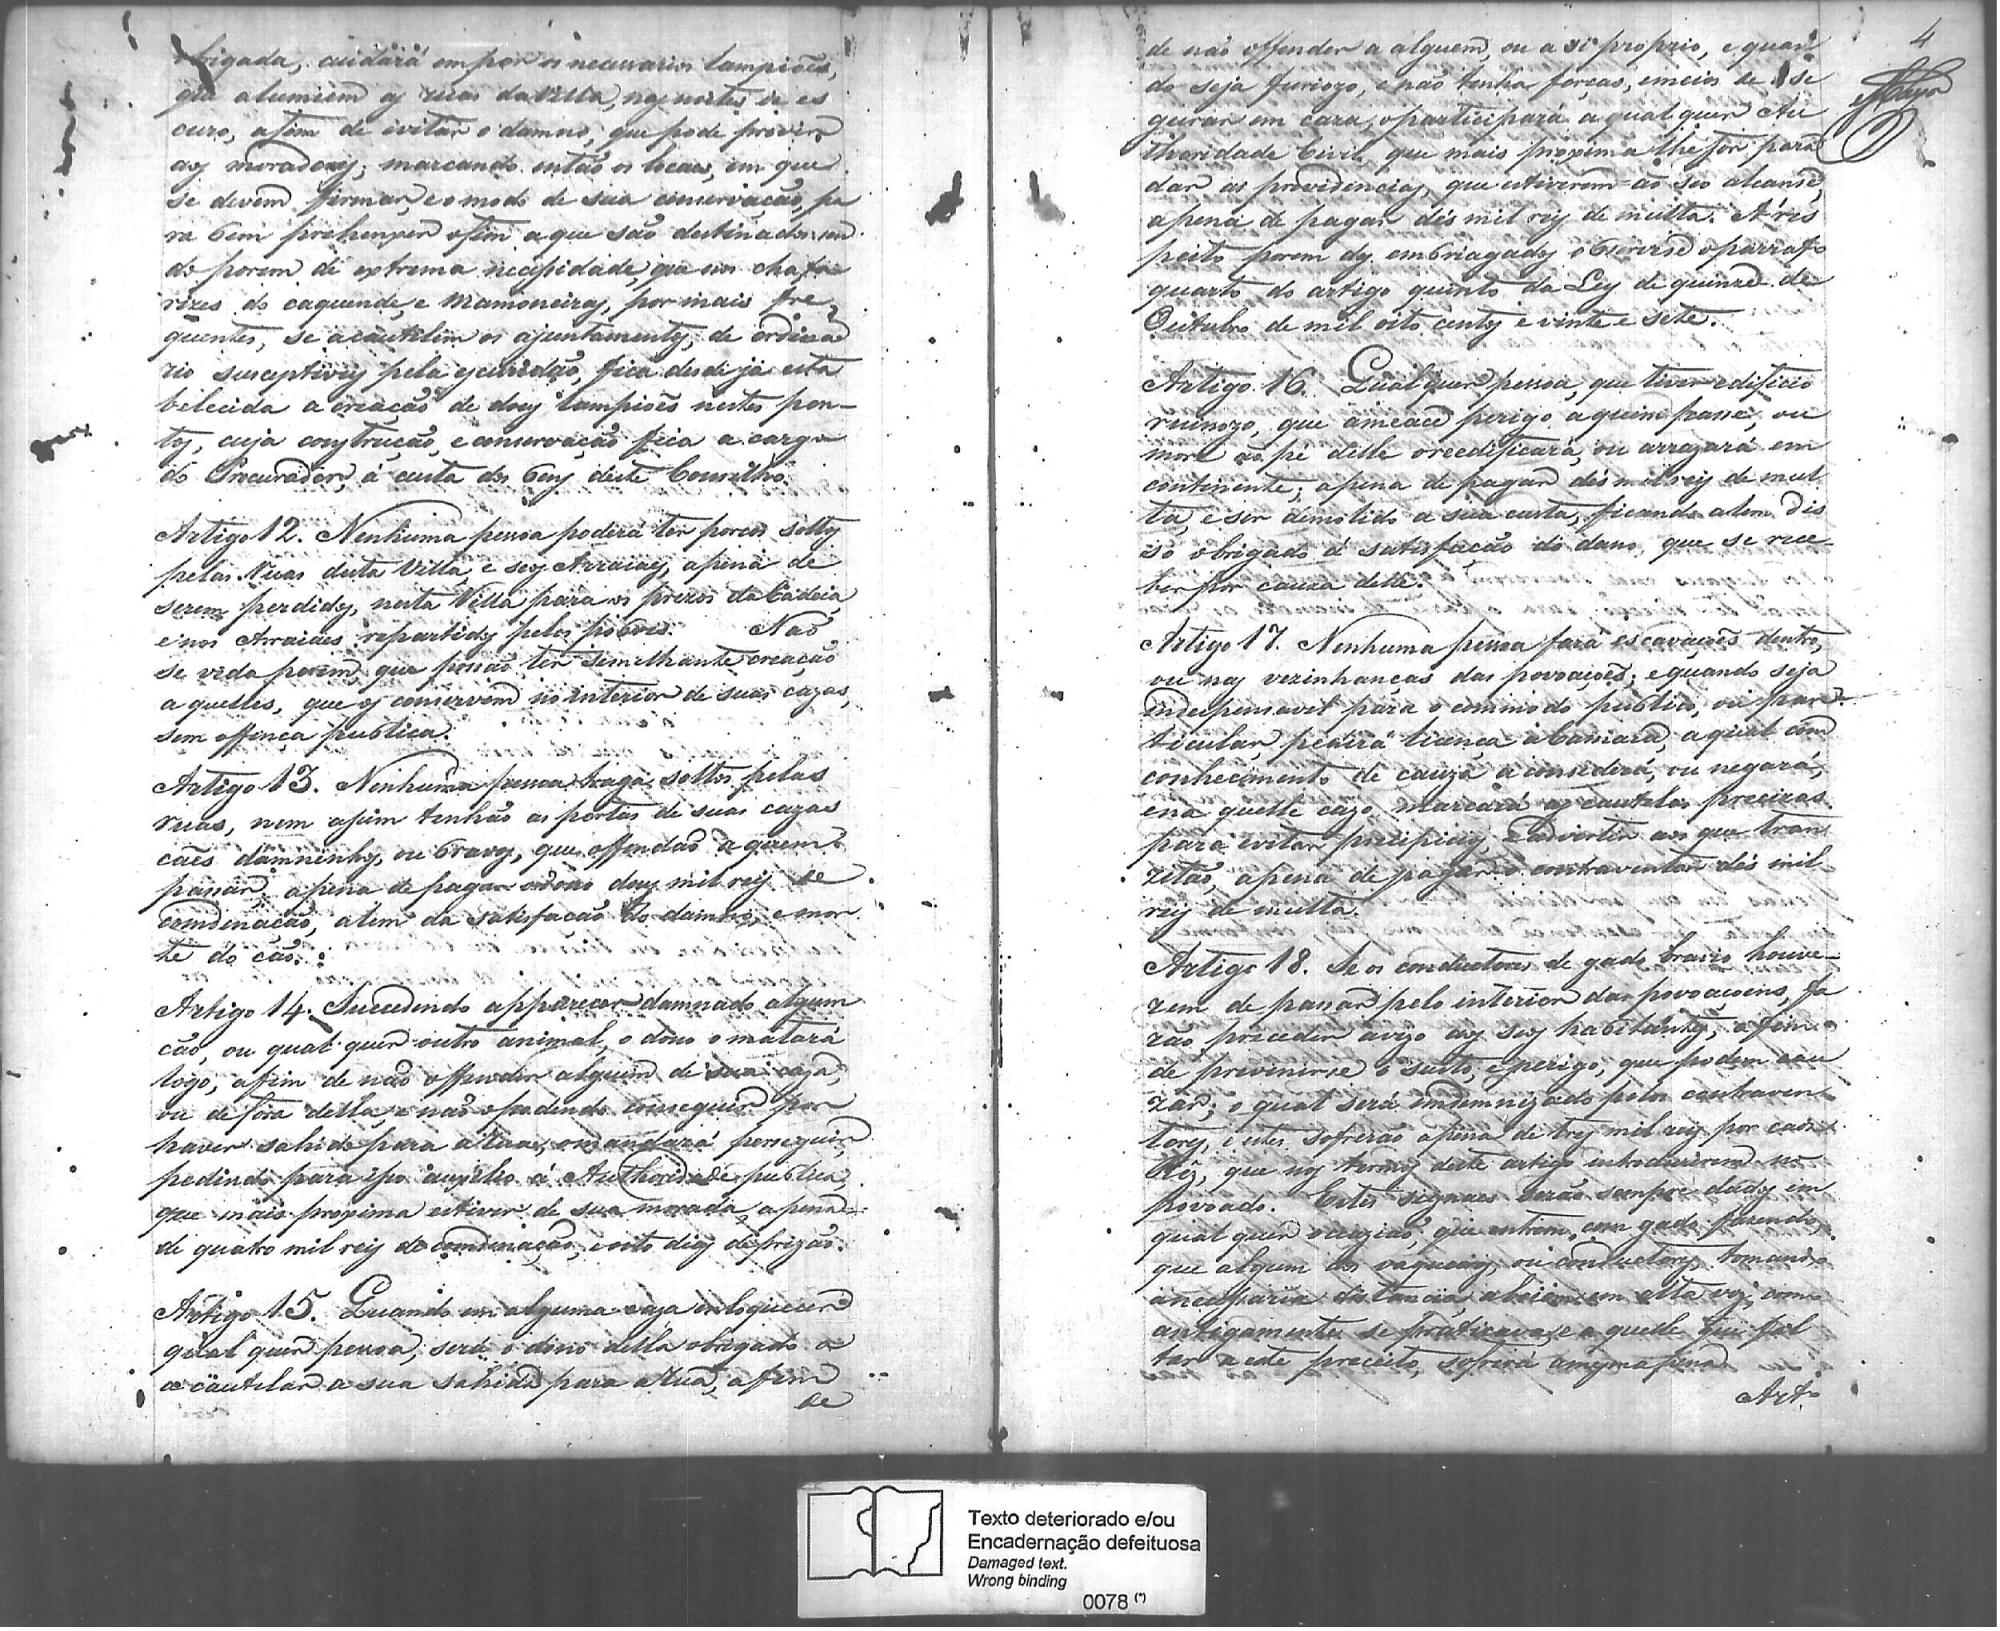 brigada, cuidará em por os necessarios lampioẽs,
que alumiem as ruas da Villa, nas noites de es
curo, afim de evitar o damno, que pode provir
aos moradores; marcando então os locaes, em que
se devem firmar, e o modo de sua conservação, pa
ra bem prehenxer o fim a que são destinados: sen
do porem de extrema necessidade, que nos chafa
rizes do caquende, e Mamoneiras, por mais fre
quentes, se acautelem os ajuntamentos, de ordina
rio susceptiveis pela escuridão, fica desde já esta
bilecida a creação de dous lampioẽs nestes pon-
tos, cuja construção, e conservação fica a cargo
do Procurador, á custa dos bens deste Conselho.
Artigo 12. Nenhuma pessoa poderá ter porcos soltos
pelas Ruas desta Villa, e seos Arraiaes, apena de
serem perdidos, nesta Villa para os prezos da Cadeia,
e nos Arraiaes repartidos pelos pobres. Não
se veda porem, que possão ter semelhante creação
aquelles, que os conservem no interior de suas cazas,
sem offença publica.
Artigo 13. Nenhuma pessoa traga soltos pelas
ruas, nem assim tenhão as portas de suas cazas
cães damninhos, ou bravos, que offendão a quem
passar; apena de pagar o dono dous mil reis de
condenação, alem da satisfação do damno, e mor
te do cão.
Artigo 14. Succedendo apparecer damnado algum
cão, ou qual quer outro animal, o dono o matará
logo, afim de não offender alguem de sua caza,
ou de fóra della, e não o podendo conseguir por
haver sahido para a rua, o mandará perseguir,
pedindo para isso auxilio á Authoridade publica
que mais proxima estiver de sua morada, apena
de quatro mil reis de condenação, e oito dias de prizão.
Artigo 15. Quando em alguma caza enloquecer
qual quer pessoa, será o dono della obrigado a
acautelar a sua sahida para a Rua, afim
de
4
de não offender a alguem, ou a si proprio, e quan
do seja furiozo, e não tenha forças, e meios de o se
gurar em caza, o participará a qual quer Au
thoridade Civil, que mais proxima lhe fôr, para
dar as providencias, que estiverem ao seo alcanse,
apena de pagar dés mil reis de multa. A res
peito porem dos embriagados observe se o parrafo
quarto do artigo quinto da Ley de quinze de
Outubro de mil oito centos e vinte e sete.
Artigo 16. Qualquer pessoa, que tiver edificio
ruinozo, que ameace perigo a quem passe, ou
more ao pé delle o reedificará, ou arrazará em
continente; apena de pagar dés mil reis de mul
ta, e ser demolido a sua custa, ficando alem dis
so obrigado á satisfação do dano, que se rece
ber por cauza delle.
Artigo 17. Nenhuma pessoa fará escavaçoẽs dentro,
ou nas vezinhanças das povoaçoẽs; e quando seja
indispensavel para o commodo publico, ou par
ticular, pedirá licença á Camara, a qual com
conhecimento de cauza a consederá, ou negará,
e na quelle cazo marcará as cautelas precizas
para evitar precipicios, e advertir aos que tran
zitão, apena de pagar o contraventor dés mil
reis de multa.
Artigo 18. Se os conductores de gado bravio houve-
rem de passar pelo interior das povoacoens, fa
rão preceder avizo aos seos habitantes, a fim
de prevenirse o susto, e perigo, que podem cau
zar; o qual será indemnizado pelos contraven
tores, e estes sofrerão apena de tres mil reis por cada
Rêz, que nos termos deste artigo introduzirem no
povoado. Estes signaes serão sempre dados em
qual quer occazião, que entrem com gado, fazendo
que algum dos vaqueiros, ou conductores, tomando
a necessaria distancia, abóiem em alta vóz, como
antigamente se praticava, e a quelle que fal
tar a este preceito, sofrerá a mesma pena.
Art.
Texto deteriorado e/ou
Encadernação defeituosa
Damaged text.
Wrong binding
0078 (*)